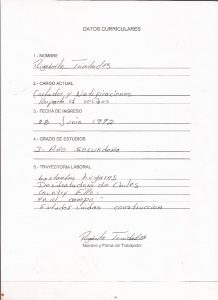 DATOS CURRICULARES
1.- NOMBRE
Rigoberto Trinidad
2.- CARGO ACTUAL
Cortador y Notificaciones
Reparto d recibos
3.- FECHA DE INGRESO
28 Junio
4.- GRADO DE ESTUDIOS
3- Año secundaria
5.- TRAYECTORIA LABORAL
bastantes lugares
Deshidratadora de Chiles
Country
en el campo
Estados Unidos construccion
Rigoberto Trinidad
Nombre y Firma del Trabajador